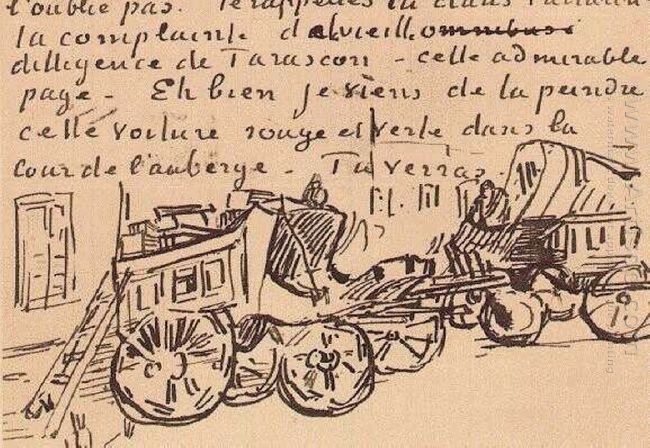 l'oublie pas. Te rappelles tu dans
la complainte de la vieille
dilligence de Tarascon - celle admirable
page - Eh bien je viens de la peindre
celle voiture rouge et verte dans la
cour de l'auberge - Tu verras.